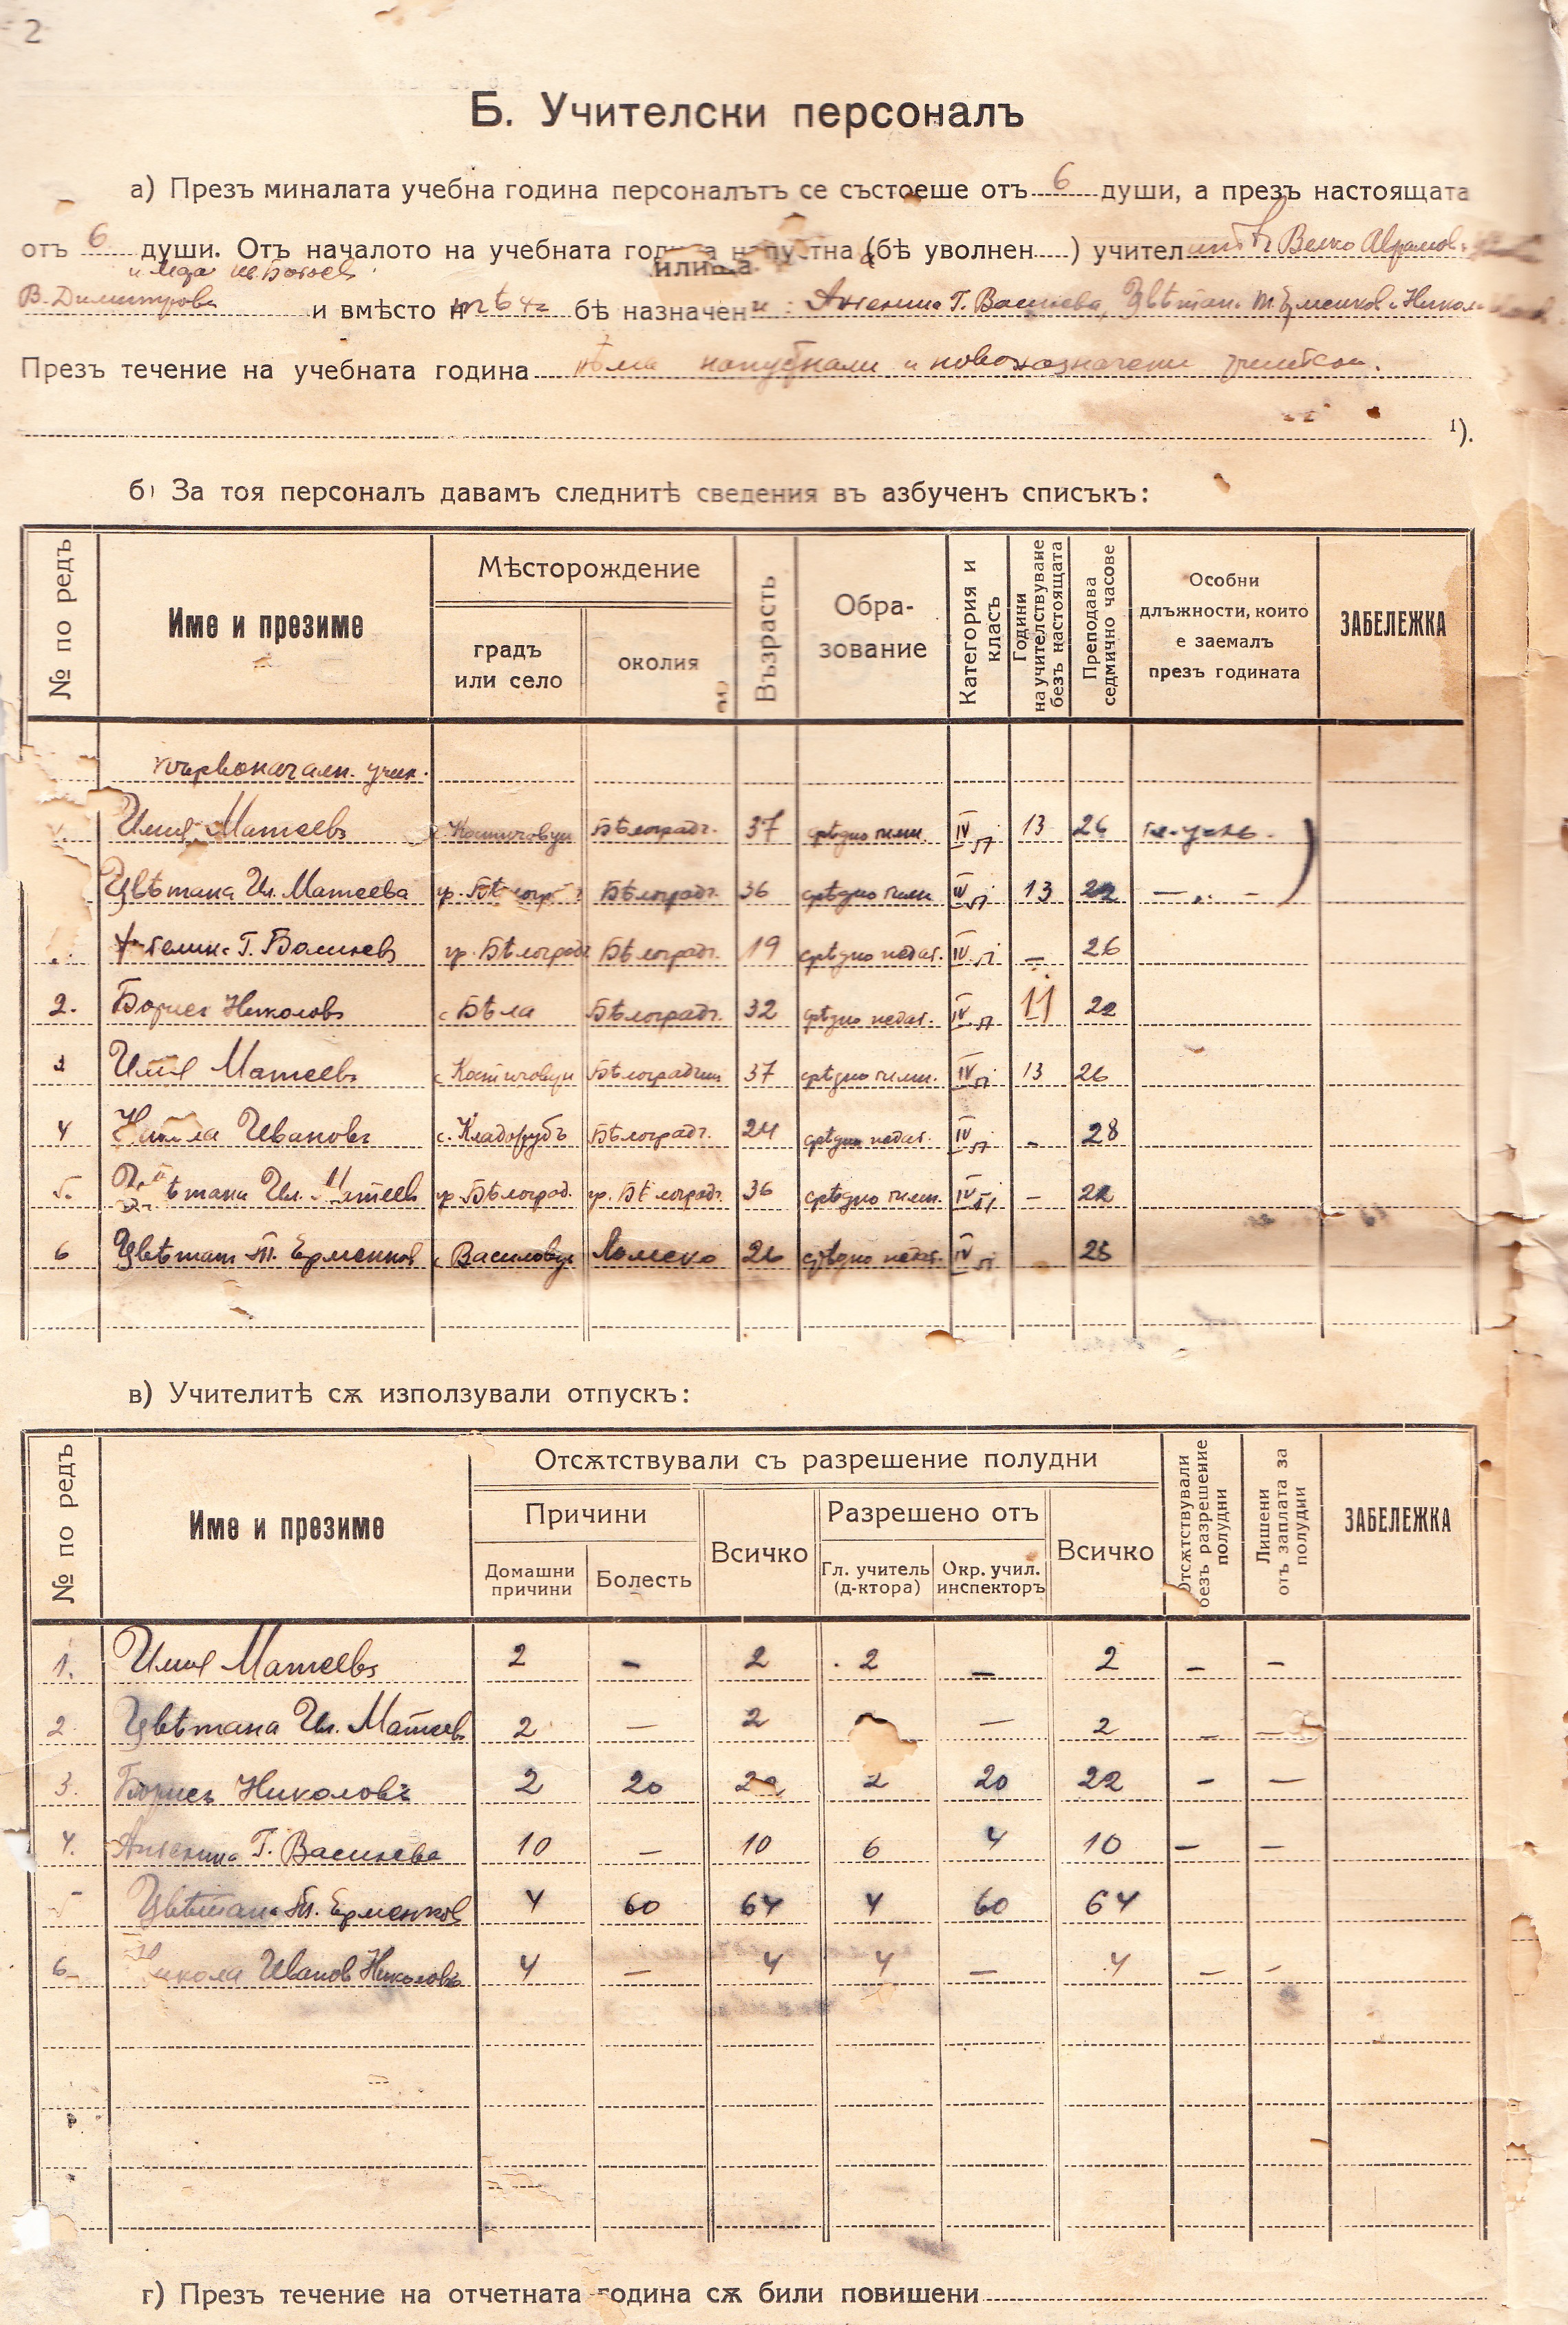 2
Б. Учителски персоналъ
а) Презъ миналата учебна година персоналътъ се състоеше отъ 6 души, а презъ настоящата
отъ 6 души. Отъ началото на учебната година напустна (бѣ уволнен) учител Велко Аврамов
В. Димитрова и вмѣсто бѣ назначен и: Г. Василева, Цвѣтан Т. Ерменков и Никола
Презъ течение на учебната година нѣма напустнали и новоназначени
¹).
б) За тоя персоналъ давамъ следнитѣ сведения въ азбученъ списъкъ:
№ по редъ Име и презиме Мѣсторождение градъ или село околия Възрасть Обра-зование Категория и класъ Години на учителствуване безъ настоящата Преподава седмично часове Особни длъжности, които е заемалъ презъ годината ЗАБЕЛЕЖКА
първоначалн. учил.
Илия Матеевъ Бѣлоградч. 37 срѣдно гимн. IV 13 26
Цвѣтана Ил. Матеева гр. Бѣлогр. Бѣлоградч. 36 срѣдно гимн IV 13 22 — „ —
Г. Василев гр. Бѣлоградч Бѣлоградч. 19 срѣдно педаг. IV — 26
2. Борисъ Николовъ с Бѣла Бѣлоградч. 32 срѣдно педаг. IV 11 22
3 Илия Матеевъ Бѣлоградчик 37 срѣдно гимн. IV 13 26
4 Никола Ивановъ с. Кладорубъ Бѣлоградч. 24 срѣдно педаг. IV - 28
5. Цвѣтана Ил. Матеев гр. Бѣлоград. гр. Бѣлоградч. 36 срѣдно гимн. IV – 22
6 Цвѣтан Т. Ерменков с Василовци Ломско 26 срѣдно педаг. IV 25
в) Учителитѣ сѫ използували отпускъ:
№ по редъ Име и презиме Отсѫтствували съ разрешение полудни Причини Домашни причини Болесть Всичко Разрешено отъ Гл. учитель (д-ктора) Окр. учил. инспекторъ Всичко Отсѫтствували безъ разрешение полудни Лишени отъ заплата за полудни ЗАБЕЛЕЖКА
1. Илия Матеевъ 2 - 2 2 — 2 – –
2. Цвѣтана Ил. Матеев 2 — 2 — 2 — —
3. Борисъ Николовъ 2 20 22 2 20 22 – —
4. Г. Василева 10 — 10 6 4 10 — –
5 Цвѣтан Т. Ерменков 4 60 64 4 60 64
6 Никола Иванов Николовъ 4 — 4 4 — 4 — –
г) Презъ течение на отчетната година сѫ били повишени